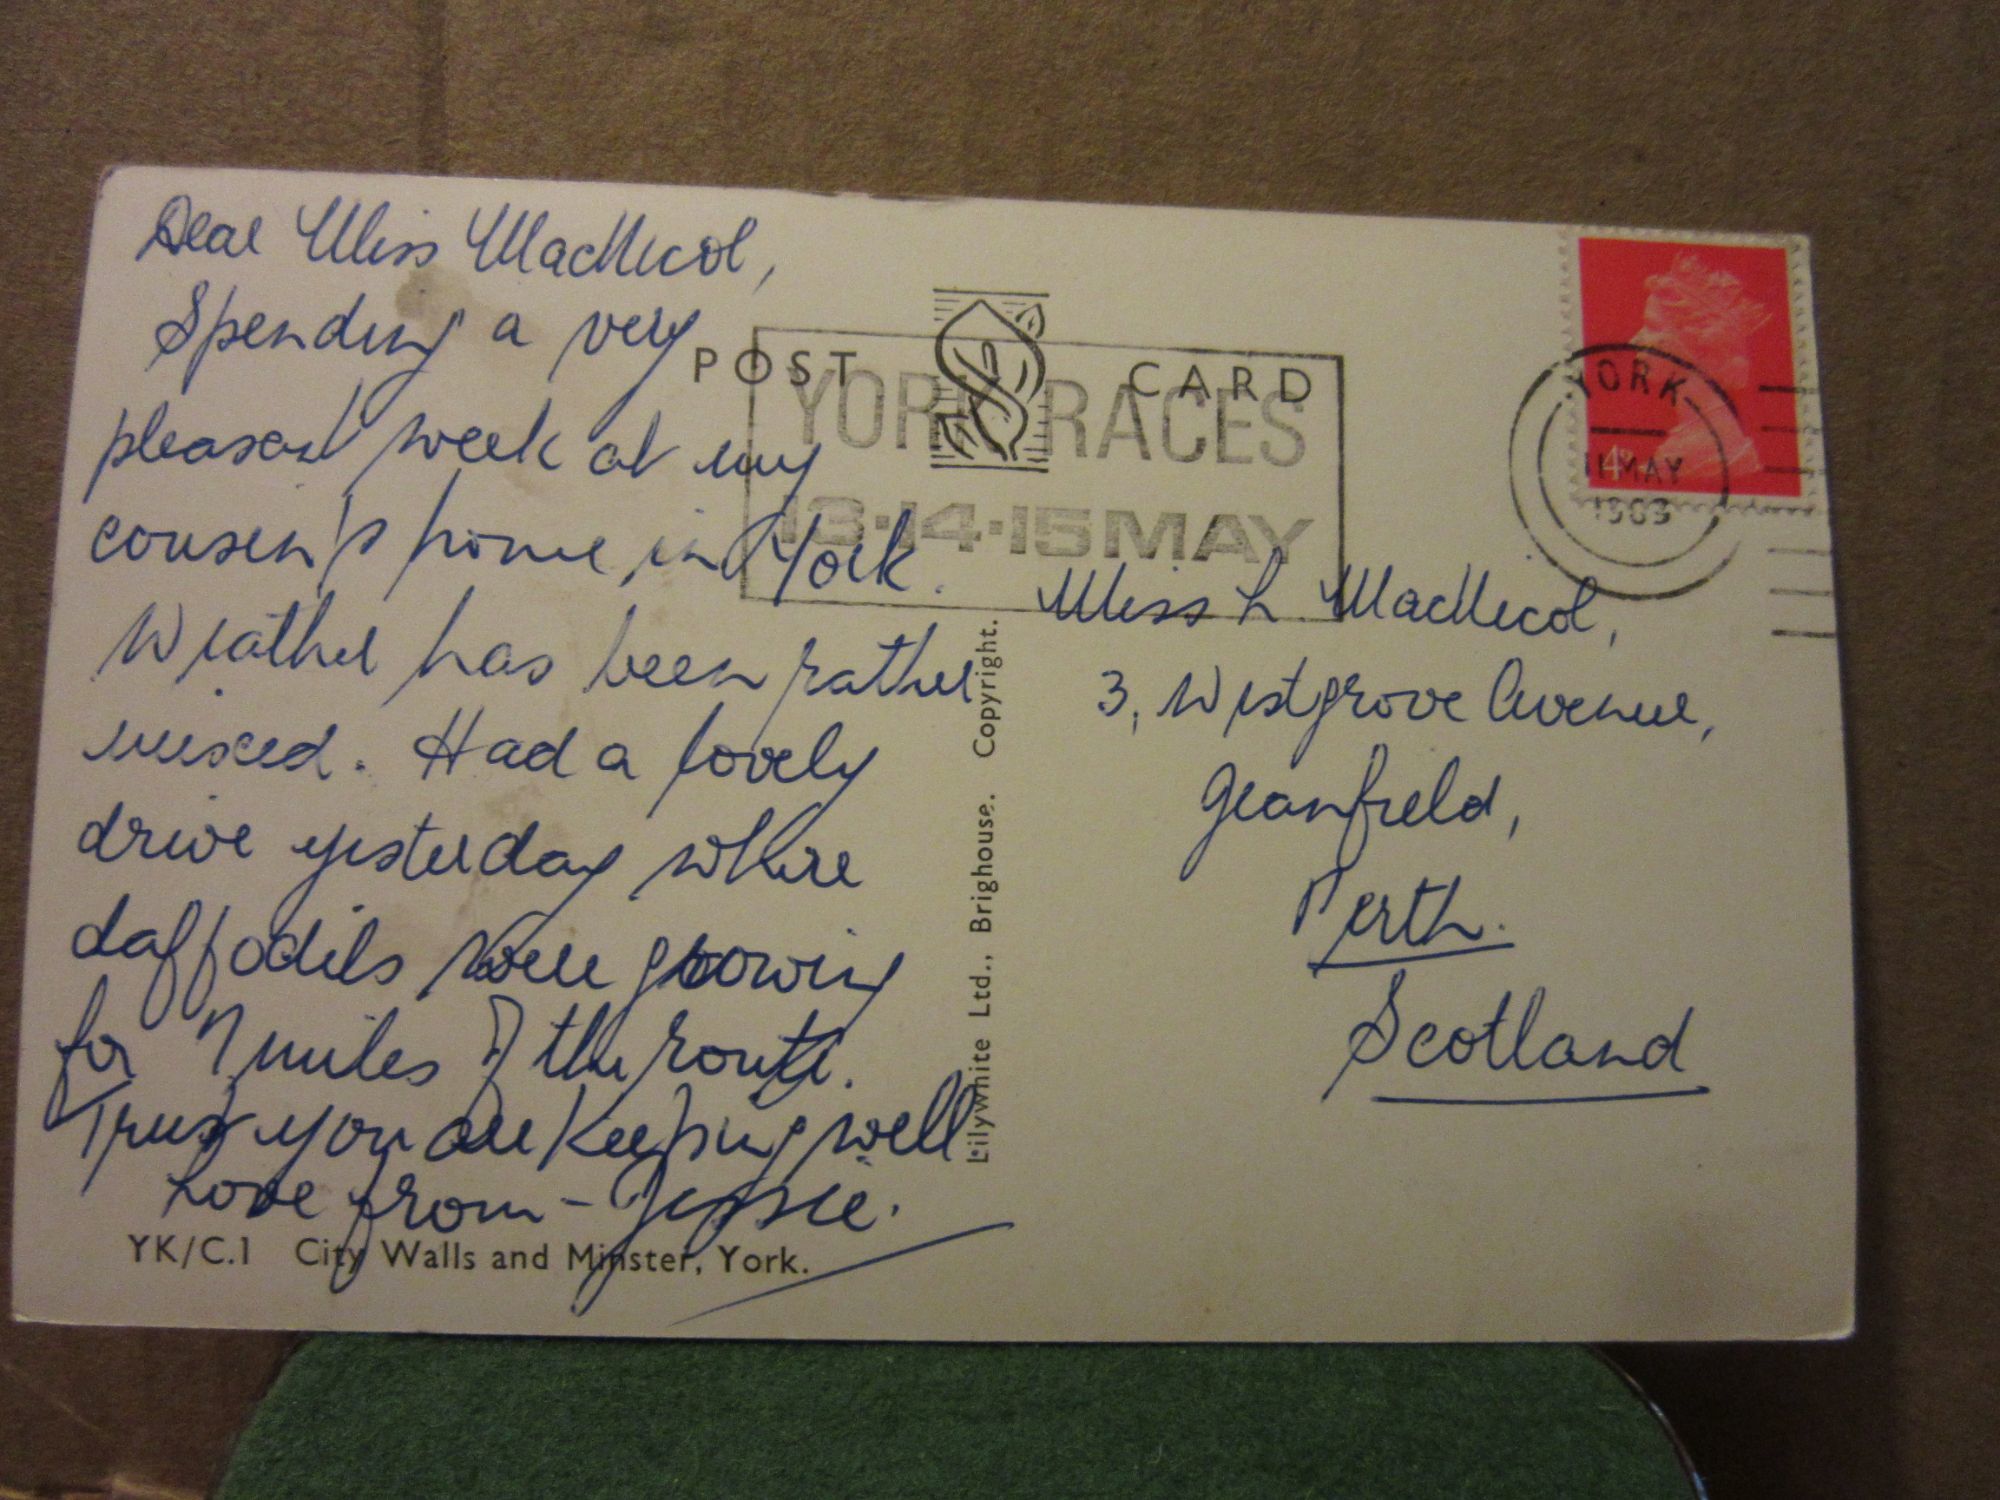 Dear Miss MacNicol,
Spending a very
pleasant week at my
cousin's home in York.
Weather has been rather
mixed. Had a lovely
drive yesterday where
daffodils were growing
for 7 miles of the route.
Trust you are keeping well
Love from - Jessie.
YK/C.1 City Walls and Minster, York.
POST CARD
YORK RACES
13·14·15 MAY
Lilywhite Ltd., Brighouse. Copyright.
YORK
11 MAY
4D
Miss L. MacNicol,
3, Westgrove Avenue,
Glanfield,
Perth.
Scotland